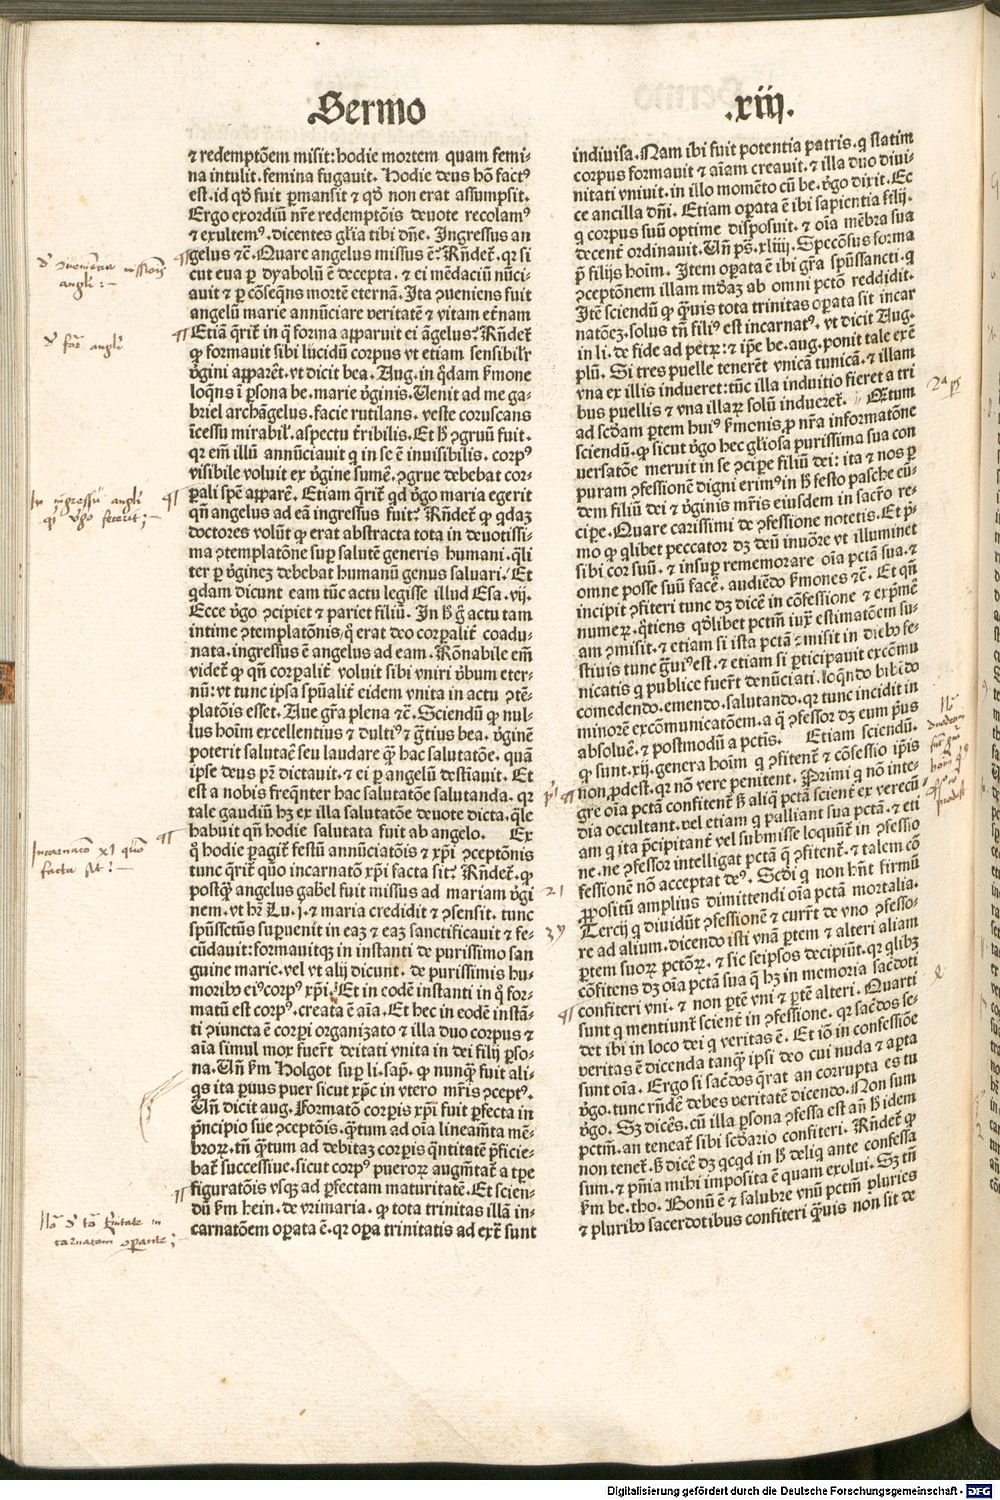 Sermo .xiij.
⁊ redemptõem misit: hodie mortem quam femi-
na intulit. femina fugauit. Hodie deus hõ factꝰ
est. id qď fuit ꝑmansit ⁊ qď non erat assumpsit.
Ergo exordiũ nr̃e redemptõis deuote recolamꝰ
⁊ exultemꝰ. dicentes gl̃ia tibi dñe. Ingressus an
gelus ⁊c̃. Quare angelus missus ẽ: Rñdet̃. qr si
cut eua ꝑ dyabolũ ẽ decepta. ⁊ ei mẽdaciũ nũci-
auit ⁊ ꝑ cõseq̃ns mortẽ eternã. Ita ꝯueniens fuit
angelũ marie annũciare veritatẽ ⁊ vitam et̃nam
Etiã q̃rit̃ in q̃ forma apparuit ei ãgelus: Rñdet̃
ꝙ formauit sibi lucidũ corpus vt etiam sensibilr̃
v̓gini apparẽt. vt dicit bea. Aug. in q̃dam ẜmone
loq̃ns ĩ ꝑsona be. marie v̓ginis. Uenit ad me ga-
briel archãgelus. facie rutilans. veste coruscans
ĩcessu mirabil̓. aspectu t̓ribilis. Et ħ ꝯgruũ fuit.
qr em̃ illũ annũciauit q in se ẽ inuisibilis. corpꝰ
visibile voluit ex v̓gine sumẽ. ꝯgrue debebat cor-
ꝑali spẽ apparẽ. Etiam q̃rit̃ qď v̓go maria egerit
qñ angelus ad eã ingressus fuit: Rñdet̃ ꝙ qďaz
doctores volũt ꝙ erat abstracta tota in deuotissi-
ma ꝯtemplatõne suꝑ salutẽ generis humani. q̃li
ter ꝑ v̓ginez debebat humanũ genus saluari. Et
qďam dicunt eam tũc actu legisse illud Esa. vij.
Ecce v̓go ꝯcipiet ⁊ pariet filiũ. In ħ g̃ actu tam
intime ꝯtemplatõnis, q̃ erat deo corꝑalit̃ coadu-
nata. ingressus ẽ angelus ad eam. Rõnabile em̃
videt̃ ꝙ qñ corꝑalit̃ voluit sibi vniri v̓bum eter-
nũ: vt tunc ipsa spũalit̃ eidem vnita in actu ꝯtẽ-
platõis esset. Aue gr̃a plena ⁊c̃. Sciendũ ꝙ nul-
lus hoĩm excellentius ⁊ dultiꝰ ⁊ g̃tius bea. v̓ginẽ
poterit salutaẽ seu laudare q̃ hac salutatõe. quã
ipse deus pr̃ dictauit. ⁊ ei ꝑ angelũ destĩauit. Et
est a nobis freq̃nter hac salutatõe salutanda. qr
tale gaudiũ hz ex illa salutatõe deuote dicta. q̃le
habuit qñ hodie salutata fuit ab angelo. Ex
q̃ hodie ꝑagit̃ festũ annũciatõis ⁊ xp̃i ꝯceptõnis
tunc q̃rit̃ quo incarnatõ xp̃i facta sit: Rñdet̃. ꝙ
postq̃ angelus gab̃el fuit missus ad mariam v̓gi
nem. vt hr̃ Lu. j. ⁊ maria credidit ⁊ ꝯsensit. tunc
spũssctũs suꝑuenit in eaz ⁊ eaz sanctificauit ⁊ fe-
cũdauit: formauitqz in instanti de purissimo san
guine marie. vel vt alij dicunt. de purissimis hu-
moribꝰ eiꝰ corpꝰ xp̃i. Et in eodẽ instanti in q̃ for-
matũ est corpꝰ. creata ẽ aĩa. Et hec in eodẽ instã-
ti ꝯiuncta ẽ corꝑi organizato ⁊ illa duo corpus ⁊
aĩa simul mox fuer̃t deitati vnita in dei filij ꝑso-
na. Uñ ẜm Holgot suꝑ li. sap. ꝙ nunq̃ fuit ali-
q̃s ita ꝑuus puer sicut xp̃c in vtero mr̃is ꝯceptꝰ.
Uñ dicit aug. Formatõ corꝑis xp̃i fuit ꝑfecta in
p̃ncipio sue ꝯceptõis. q̃tum ad oĩa lineam̃ta mẽ-
broꝝ. tñ q̃tum ad debitaz corꝑis q̃ntitatẽ ꝑficie-
bat̃ successiue. sicut corpꝰ pueroꝝ augm̃tat̃ a tꝑe
figuratõis vsqz ad ꝑfectam maturitatẽ. Et scien-
dũ ẜm hein. de vrimaria. ꝙ tota trinitas illã in-
carnatõem oꝑata ẽ. qr oꝑa trinitatis ad ext̃ sunt
indiuisa. Nam ibi fuit potentia patris. q statim
corpus formauit ⁊ aĩam creauit. ⁊ illa duo diui-
nitati vniuit. in illo momẽto cũ be. v̓go dixit. Ec
ce ancilla dñi. Etiam oꝑata ẽ ibi sapientia filij.
q corpus suũ optime disposuit. ⁊ oĩa mẽbra sua
decent̓ ordinauit. Uñ ps̃. xliiij. Speciosus forma
p̃ filijs hoĩm. Item oꝑata ẽ ibi gr̃a spũssancti. q
ꝯceptõnem illam mũdaz ab omni pctõ reddidit.
Itẽ sciendũ ꝙ q̃uis tota trinitas oꝑata sit incar
natõez. solus tñ filiꝰ est incarnatꝰ. vt dicit Aug.
in li. de fide ad petꝝ: ⁊ ip̃e be. aug. ponit tale exẽ
plũ. Si tres puelle tenerẽt vnicã tunicã. ⁊ illam
vna ex illis indueret: tũc illa induitio fieret a tri
bus puellis ⁊ vna illaꝝ solũ indueret̃. Q̃tum
ad scďam ꝑtem huiꝰ ẜmonis, ꝓ nr̃a informatõne
sciendũ. ꝙ sicut v̓go hec gl̃iosa purissima sua con
uersatõe meruit in se ꝯcipe filiũ dei: ita ⁊ nos ꝑ
puram ꝯfessionẽ digni erimꝰ in ħ festo pasche eũ-
dem filiũ dei ⁊ v̓ginis mr̃is eiusdem in sacr̃o re-
ciꝑe. Quare carissimi de ꝯfessione notetis. Et p̃-
mo ꝙ qlibet peccator dz deũ inuõre vt illuminet
sibi cor suũ. ⁊ insuꝑ rememorare oĩa pctã sua. ⁊
omne posse suũ facẽ. audiẽdo ẜmones ⁊c̃. Et qñ
incipit ꝯfiteri tunc dz dicẽ in cõfessione ⁊ exp̃mẽ
numeꝝ. q̃tiens qďlibet pctm̃ iux̃ estimatõem su-
am ꝯmisit. ⁊ etiam si ista pctã ꝯmisit in diebꝰ fe-
stiuis tunc g̃uiꝰ est. ⁊ etiam si ꝑticipauit excõmu
nicatis q publice fuer̃t denũciati. loq̃ndo bibẽdo
comedendo. emendo. salutando. qr tunc incidit in
minorẽ excõmunicatõem. a q̃ ꝯfessor dz eum p̓us
absoluẽ. ⁊ postmodũ a pctis̃. Etiam sciendũ.
ꝙ sunt. xij. genera hoĩm q ꝯfitent̃ ⁊ cõfessio ip̃is
non ꝓdest. qr nõ vere penitent. Primi q nõ inte-
gre oĩa pctã confitent̃ ẜ aliq̃ pctã scient̃ ex verecũ
dia occultant. vel etiam q palliant sua pctã. ⁊ eti
am q ita p̃cipitant̃ vel submisse loquũt̃ in ꝯfessio
ne. ne ꝯfessor intelligat pctã q̃ ꝯfitent̃. ⁊ talem cõ
fessionẽ nõ acceptat deꝰ. Scďi q non hñt firmũ
ꝓpositũ amplius dimittendi oĩa pctã mortalia.
Tercij q diuidũt ꝯfessionẽ ⁊ curr̃t de vno ꝯfesso-
re ad alium. dicendo isti vnã ꝑtem ⁊ alteri aliam
ꝑtem suoꝝ pctõꝝ. ⁊ sic seipsos decipiũt. qr qlibz
cõfitens dz oĩa pctã sua q̃ hz in memoria sac̓doti
confiteri vni. ⁊ non ꝑtẽ vni ⁊ ꝑtẽ alteri. Quarti
sunt q mentiunt̃ scient̃ in ꝯfessione. qr sac̓dos se-
det ibi in loco dei q veritas ẽ. Et iõ in confessiõe
veritas ẽ dicenda tanq̃ ipsi deo cui nuda ⁊ aꝑta
sunt oĩa. Ergo si sac̓dos q̃rat an corrupta es tu
v̓go. tunc rñdẽ debes veritatẽ dicendo. Non sum
v̓go. Sz dices̃. cũ illa ꝑsona ꝯfessa est añ ħ idem
pctm̃. an teneat̃ sibi scďario confiteri. Rñdet̃ ꝙ
non tenet̃. ẜ dicẽ dz qcqd in ħ deliq̃ ante confessa
sum. ⁊ pñia mihi imposita ẽ quam exolui. Sz tñ
ẜm be. tho. Bonũ ẽ ⁊ salubre vnũ pctm̃ pluries
⁊ pluribꝰ sacerdotibus confiteri q̃uis non sit de
Digitalisierung gefördert durch die Deutsche Forschungsgemeinschaft - DFG